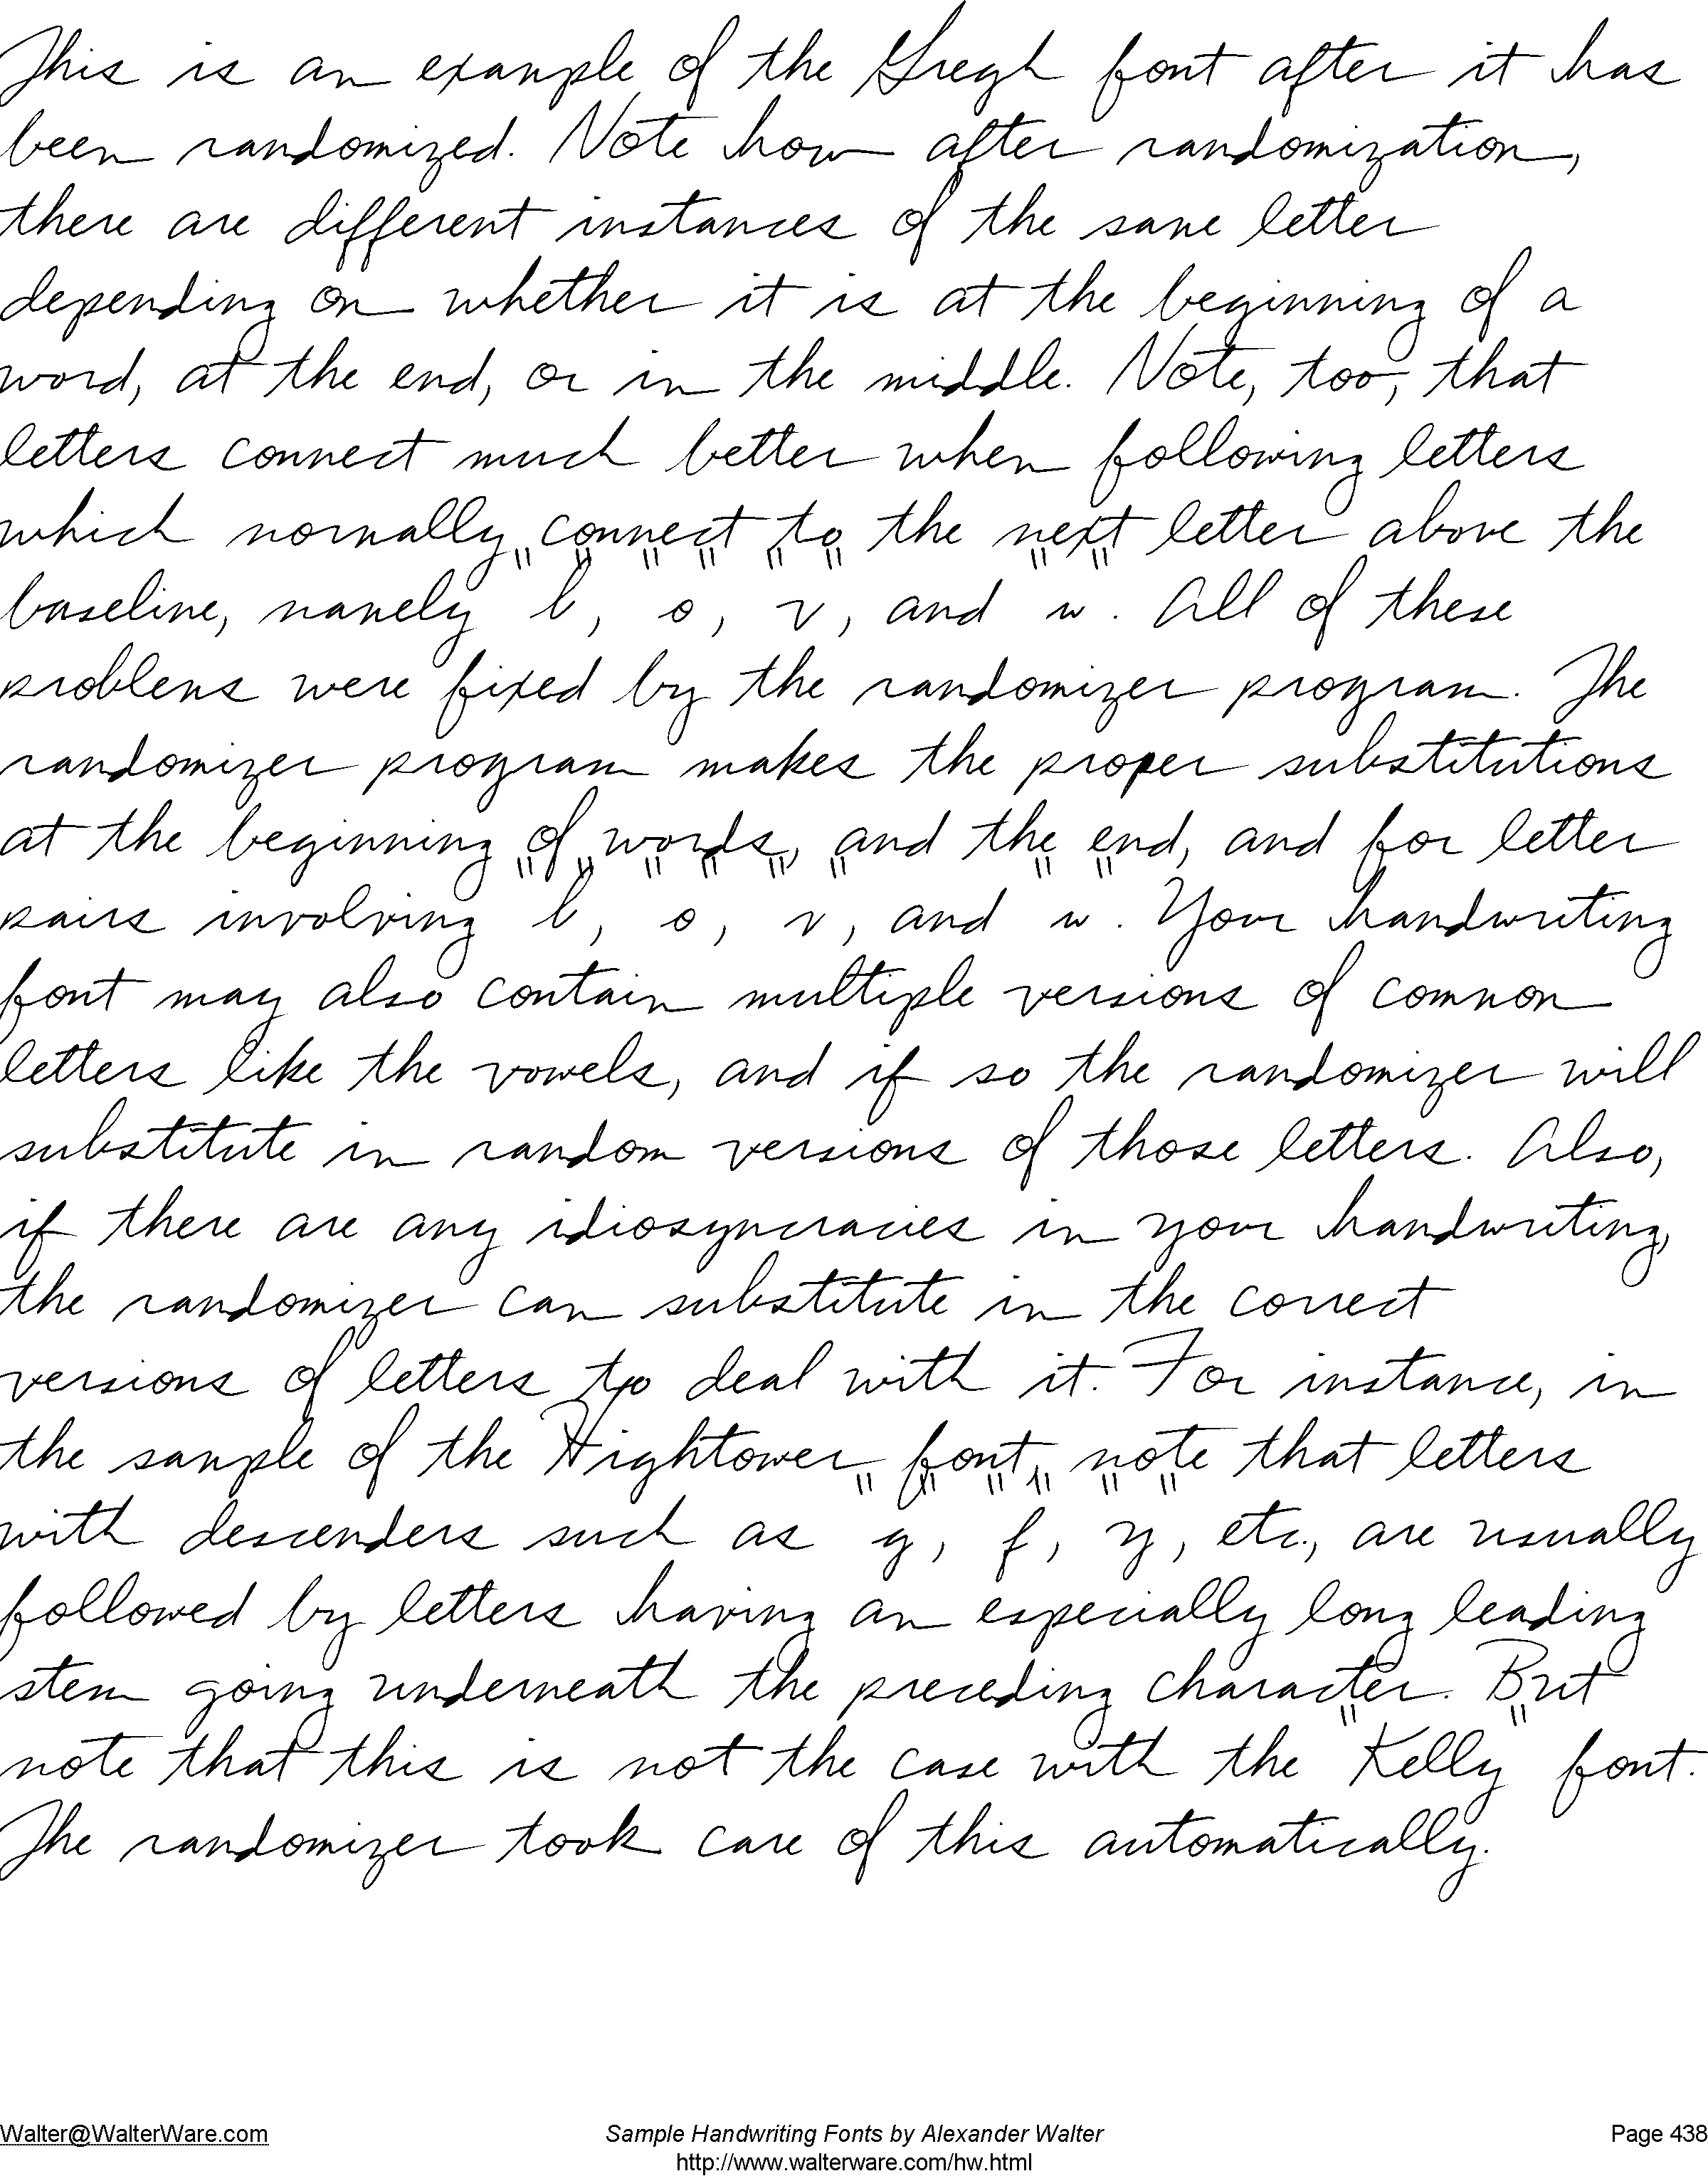 This is an example of the Gregh font after it has
been randomized. Note how after randomization,
there are different instances of the same letter
depending on whether it is at the beginning of a
word, at the end, or in the middle. Note, too, that
letters connect much better when following letters
which normally connect to the next letter above the
baseline, namely b, o, v, and w. All of these
problems were fixed by the randomizer program. The
randomizer program makes the proper substitutions
at the beginning of words, and the end, and for letter
pairs involving b, o, v, and w. Your handwriting
font may also contain multiple versions of common
letters like the vowels, and if so the randomizer will
substitute in random versions of those letters. Also,
if there are any idiosyncracies in your handwriting,
the randomizer can substitute in the correct
versions of letters to deal with it. For instance, in
the sample of the Hightower font, note that letters
with descenders such as g, f, y, etc., are usually
followed by letters having an especially long leading
stem going underneath the preceding character. But
note that this is not the case with the Kelly font.
The randomizer took care of this automatically.
Walter@WalterWare.com Sample Handwriting Fonts by Alexander Walter Page 438
http://www.walterware.com/hw.html